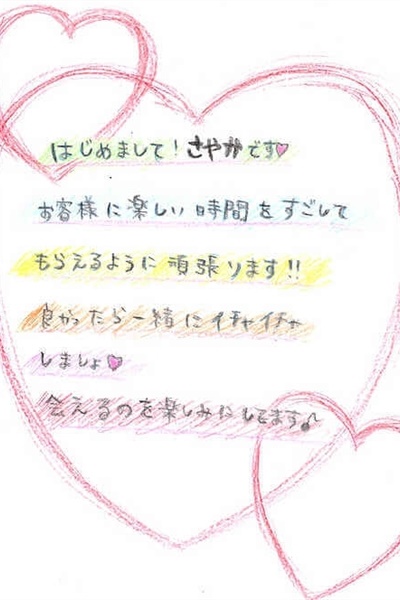 はじめまして！さやかです♥
お客様に楽しい時間をすごして
もらえるように頑張ります!!
良かったら一緒にイチャイチャ
しましょ♥
会えるのを楽しみにしてます♪